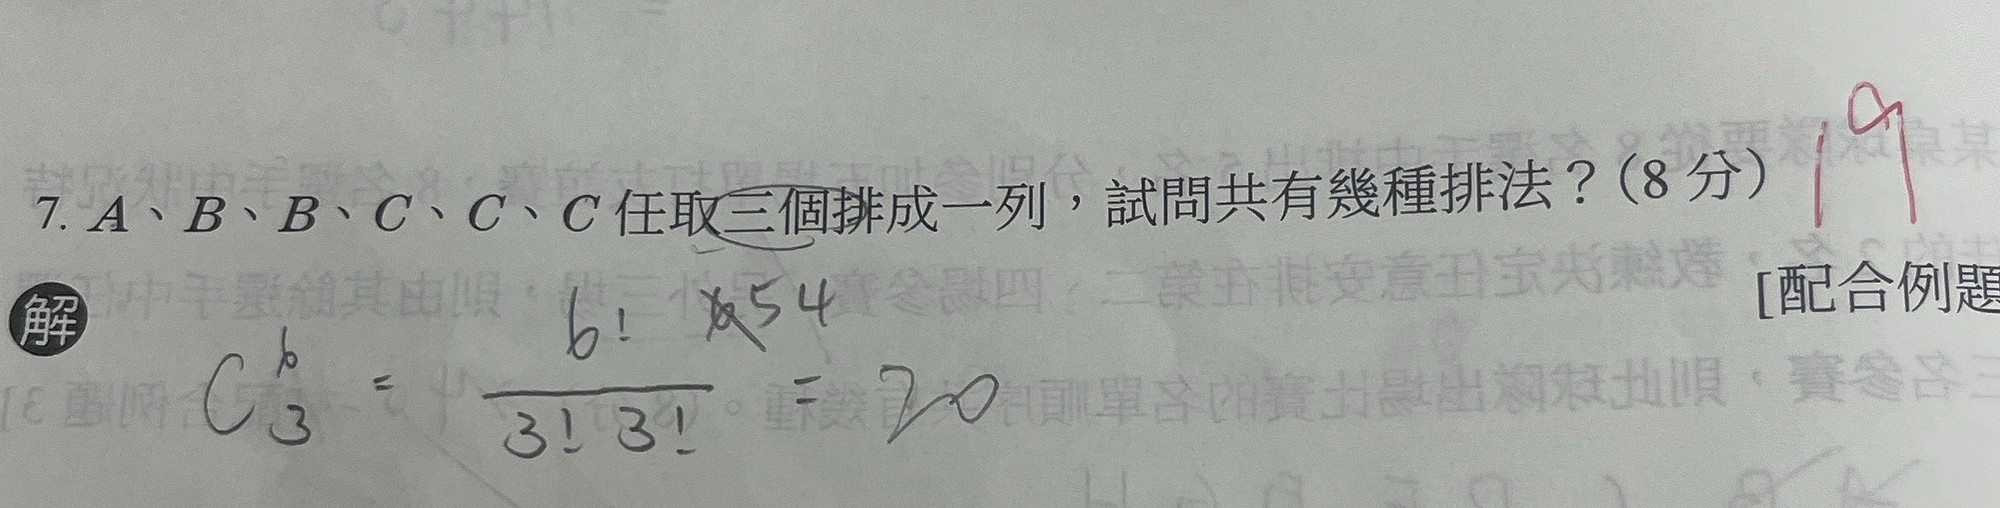 7. A、B、B、C、C、C 任取三個排成一列，試問共有幾種排法？(8 分) 19
[配合例題
解
C^6_3 = 6! 54 / 3! 3! = 20